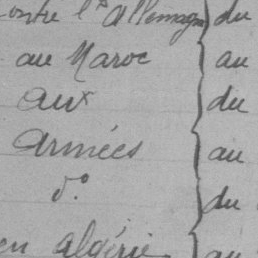 contre l'Allemagne { du
au Maroc { au
aux { du
armées { au
d° { du
en algérie { au